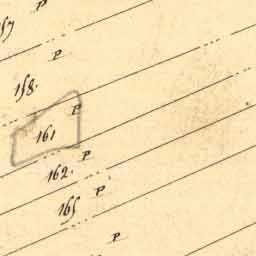 157
p
p
158.
p
161
p
162.
p
165
p